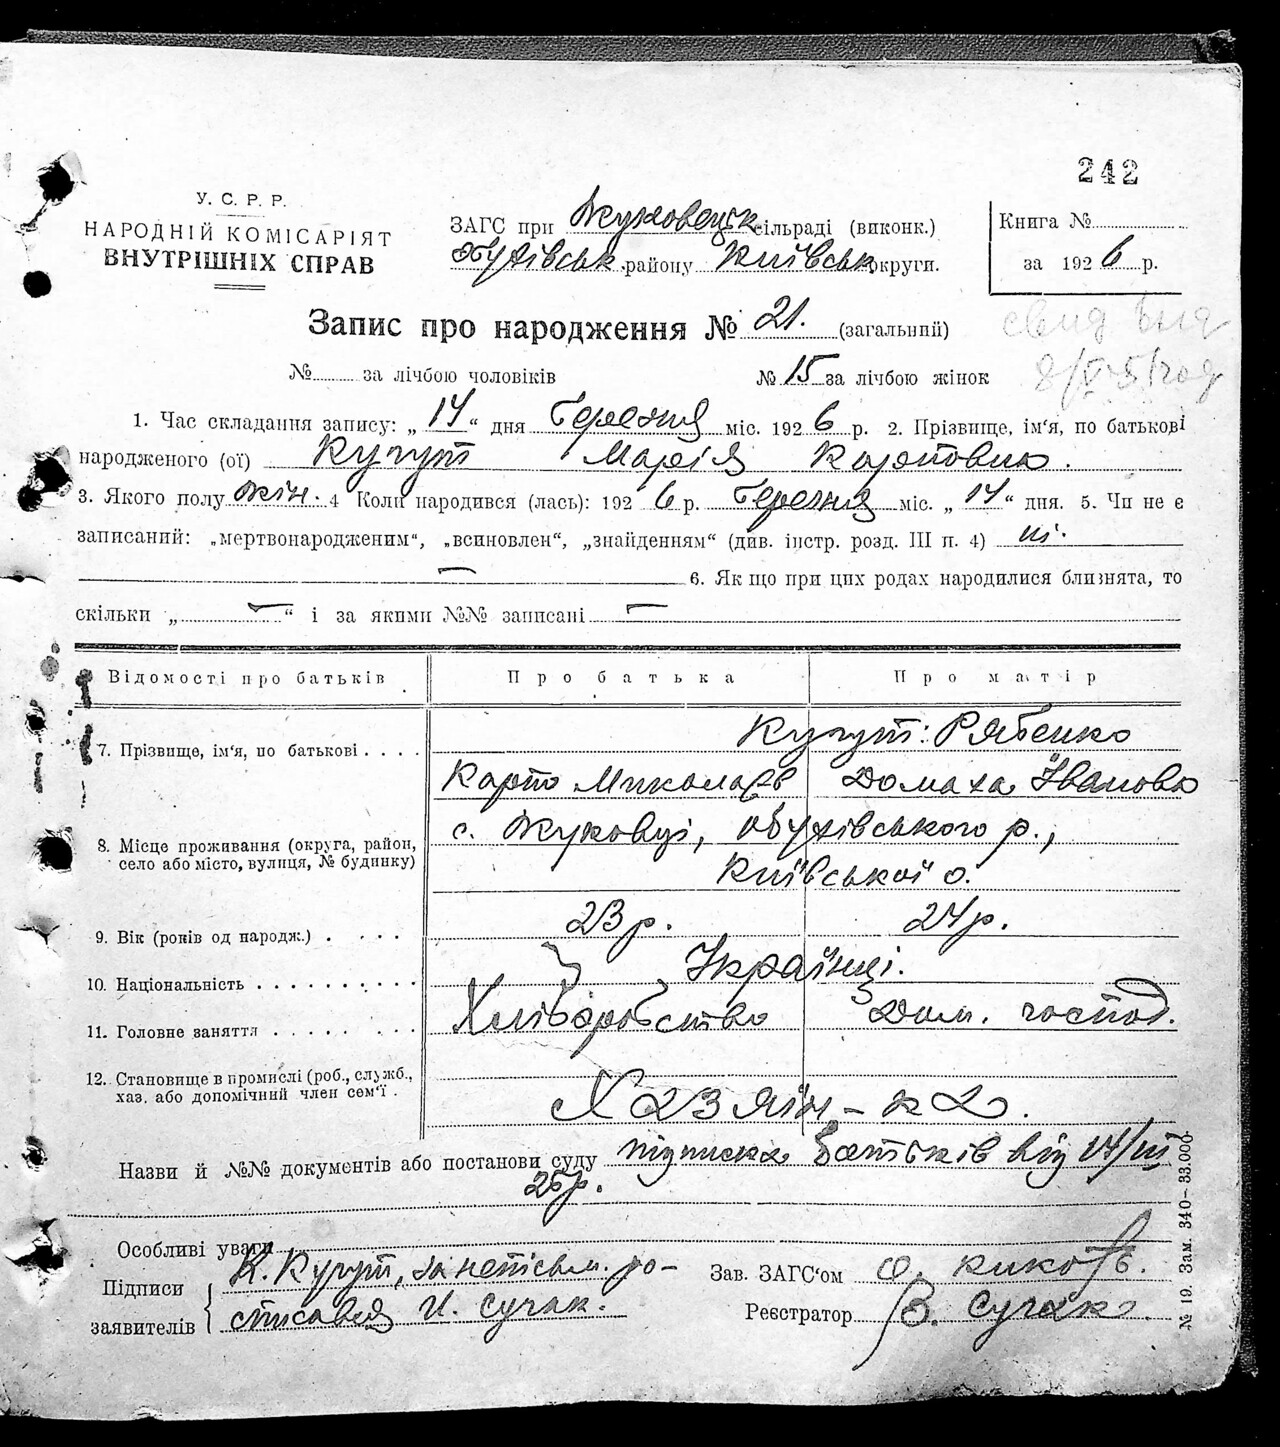 242
У. С. Р. Р.
НАРОДНІЙ КОМІСАРІЯТ
ВНУТРІШНІХ СПРАВ
ЗАГС при Жуковецьк сільраді (виконк.)
Обухівськ району Київськ округи.
Книга №
за 1926 р.
Запис про народження № 21. (загальний)
№ за лічбою чоловіків № 15 за лічбою жінок
1. Час складання запису: „14“ дня березня міс. 1926 р. 2. Прізвище, ім'я, по батькові
народженого (ої) Кугут Марія Карповна.
3. Якого полу жін. 4 Коли народився (лась): 1926 р. березня міс. „14“ дня. 5. Чи не є
записаний: „мертвонародженим“, „всиновлен“, „знайденням“ (див. інстр. розд. III п. 4) ні.
— 6. Як що при цих родах народилися близнята, то
скільки „—“ і за якими №№ записані —
Відомості про батьків Про батька Про матір
7. Прізвище, ім'я, по батькові . . . . Кугут: Рябенко
Карпо Миколаєв Домаха Іванова
8. Місце проживання (округа, район, село або місто, вулиця, № будинку) с. Жуковці, Обухівського р.,
Київської о.
9. Вік (років од народж.) . . . . 23 р. 24 р.
10. Національність . . . . . . . . . . Українці.
11. Головне заняття . . . . . . . . Хліборобство Дом. господ.
12. Становище в промислі (роб., служб.,
хаз. або допомічний член сем'ї . Хазяїн – ка.
Назви й №№ документів або постанови суду підписка батьків від 14/III
26р.
Особливі уваги
Підписи К. Кугут, за неписьм. ро-
заявителів списався И. Сучак.
Зав. ЗАГС'ом
Реєстратор В. Сучак.
№ 19. Зам. 340–33.000